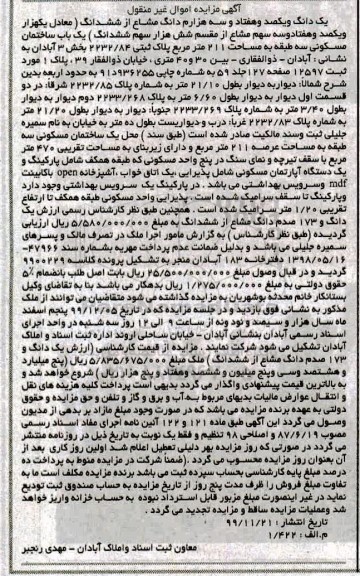 آگهی مزایده اموال غیر منقول
یک دانگ ویکصد وهفتاد و سه هزارم دانگ مشاع از ششدانگ ( معادل یکهزار
ویکصد وهفتادوسه سهم مشاع از مقسم شش هزار سهم ششدانگ ) یک باب ساختمان
مسکونی سه طبقه به مساحت ۲۱۱ متر مربع پلاک ثبتی ۲۲۳۲/۸۴ بخش ۳ آبادان به
نشانی : آبادان - ذوالفقاری - بین ۳۰ و ۴۰ متری ، خیابان ذوالفقار ۳۹ ، پلاک ۱ مورد
ثبت ۱۲۵۹۷ صفحه ۱۲۷ جلد ۵۹ به شماره چاپی ۹۳۶۲۵۵/الف۹۱ به حدود اربعه بدین
شرح شمالا: دیواربه دیوار بطول ۲۱/۱۰ متر به شماره پلاک ۲۲۳۲/۸۵ شرقا: در دو
قسمت اول دیوار به دیوار بطول ۶/۶۰ متر به پلاک ۲۲۳۲/۲۶۸ دوم دیوار به دیوار
بطول ۳/۴۰ متر به شماره پلاک ۲۲۳۲/۲۶۹ جنوبا: دیوار به دیوار بطول ۲۱/۲۰ متر
به شماره پلاک ۲۲۳۲/۸۳ غربا: درب و دیواریست بطول ده متر به خیابان به نام سمیره
جلیلی ثبت وسند مالکیت صادر شده است (طبق سند ) محل یک ساختمان مسکونی سه
طبقه به مساحت عرصه ۲۱۱ متر مربع و دارای زیربنای به مساحت تقریبی ۴۷۰ متر
با سقف تیرچه و نمای سنگ در پنج واحد مسکونی که طبقه همکف شامل پارکینگ و
یک دستگاه آپارتمان مسکونی شامل پذیرایی ،یک اتاق خواب ،آشپزخانه open باکابینت
mdf وسرویس بهداشتی می باشد . در پارکینگ یک سرویس بهداشتی وجود دارد
وپارکینگ تا سقف سرامیک شده است . پذیرایی واحد مسکونی طبقه همکف تا ارتفاع
تقریبی ۱/۲۰ متر سرامیک شده است . همچنین طبق نظر کارشناس رسمی ارزش یک
دانگ و ۱۷۳ صدم دانگ مشاع از ششدانگ به مبلغ ۵/۵۸۰/۰۰۰/۰۰۰ ریال ارزیابی
گردیده (طبق نظر کارشناس ) به گزارش مامور اجرا ملک در تصرف مالک و پسرهای
سمیره جلیلی می باشد و بدلیل ضمانت عدم پرداخت مهریه به‌شماره سند ۴۷۹۶۶-
۱۳۹۸/۰۵/۱۶ دفترخانه ۱۸۳ آبادان منجر به تشکیل پرونده کلاسه ۹۹۰۰۲۲۹
گردید و در قبال وصول مبلغ ۲۵/۵۰۰/۰۰۰/۰۰۰ ریال بابت اصل طلب بانضمام ۵%
حقوق دولتی به مبلغ ۱/۲۷۵/۰۰۰/۰۰۰ ریال بدهکار می باشد بنا به تقاضای وکیل
بستانکار خانم محدثه بوشهریان به مزایده گذاشته می شود متقاضیان می توانند از ملک
مذکور به نشانی فوق بازدید و در جلسه مزایده که در تاریخ ۹۹/۱۲/۰۵ پنجم اسفند
ماه سال هزار و سیصد و نود ونه از ساعت ۹ الی ۱۲ روز سه شنبه در واحد اجرای
اسناد رسمی آبادان بنشانی آبادان - خیابان ساحلی اروند اداره ثبت اسناد و املاک
آبادان تشکیل می شود شرکت نمایند . مزایده از قیمت کارشناسی (ارزش یک دانگ و
۱۷۳ صدم دانگ مشاع از ششدانگ ) ملک مبلغ ۵/۸۳۵/۶۷۵/۰۰۰ ریال (پنج میلیارد
و هشتصد وسی وپنج میلیون و ششصد وهفتاد و پنج هزار ریال ) شروع خواهد شد و
به بالاترین قیمت پیشنهادی واگذار می گردد بدیهی است پرداخت کلیه هزینه های نقل
و انتقال عوارض مالیات بدیهای مربوط به آب و برق و گاز و تلفن و حق مزایده و حقوق
دولتی به عهده برنده مزایده می باشد که در صورت وجود مبلغ مازاد بر بدهی از مدیون
وصول می گردد این آگهی طبق ماده ۱۲۱ و ۱۲۲ آئین نامه اجرای مفاد اسناد رسمی
مصوب ۸۷/۶/۱۹ و اصلاحی ۹۸ تنظیم و فقط یک نوبت به تاریخ ذیل در روزنامه منتشر
می گردد در صورتی که روز مزایده بهر دلیلی تعطیل اعلام شد اولین روز کاری بعد از
آن بعنوان روز مزایده محسوب می گردد .(ضمنا شرکت در مزایده منوط به پرداخت ده
درصد مبلغ پایه کارشناسی بحساب سپرده ثبت می باشد برنده مزایده مکلف است ما به
تفاوت مبلغ فروش را ظرف مدت پنج روز از تاریخ مزایده به حساب صندوق ثبت تودیع
نماید در غیر اینصورت مبلغ مزبور قابل استرداد نبوده به حساب خزانه واریز خواهد
شد وعملیات مزایده ساقط و مزایده تجدید می گردد .
تاریخ انتشار : ۹۹/۱۱/۲۱
م.الف : ۱/۴۲۲
معاون ثبت اسناد واملاک آبادان - مهدی رنجبر